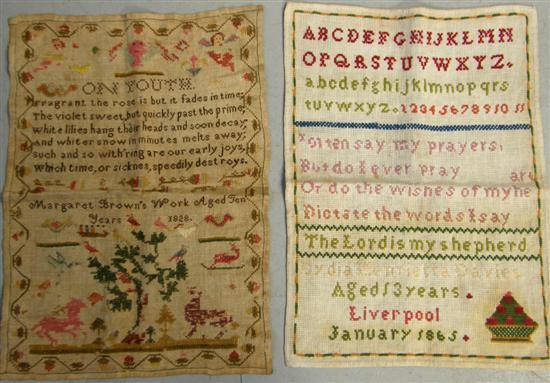 ON YOUTH.
Fragrant the rose is but it fades in time;
The violet sweet, but quickly past the prime;
White lilies hang their heads and soon decay;
And whiter snow in minutes melts away;
Such and so with'ring are our early joys,
Which time, or sicknes, speedily destroys.
Margaret Brown's Work Aged Ten
Years 1828.
ABCDEFGHIJKLMN
OPQRSTUVWXYZ.
abcdefghijklmnopqrs
tuvwxyz.1234567891011
I often say my prayers,
But do I ever pray
Or do the wishes of my he
art
Dictate the words I say
The Lord is my shepherd
Lydia Henrietta Davies
Aged 13 years.
Liverpool
January 1865.